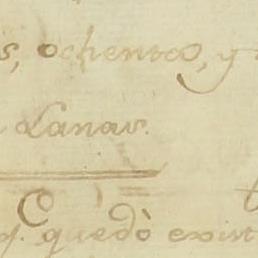 s, ochenta, y
Lanas.
q. quedò exist